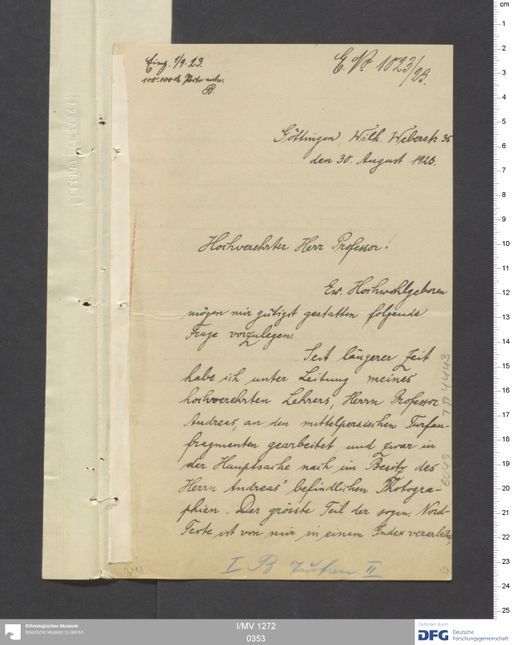 Eing. 1/9.23.
E. № 1023/23.
Göttingen, Wilh. Weberstr. 36
den 30. August 1923.
Hochverehrter Herr Professor!
Ew. Hochwohlgeboren
mögen mir gütigst gestatten folgende
Frage vorzulegen.
Seit längerer Zeit
habe ich unter Leitung meines
hochverehrten Lehrers, Herrn Professor
Andreas, an den mittelpersischen Turfan-
fragmenten gearbeitet, und zwar in
der Hauptsache nach im Besitz des
Herrn Andreas' befindlichen Photogra-
phien. Der grösste Teil der sogen. Nord-
Texte ist von mir in einem Index verarbeitet,
I B Turfan II
Ethnologisches Museum
Staatliche Museen zu Berlin
I/MV 1272
0353
DFG Deutsche
Forschungsgemeinschaft
cm
1
2
3
4
5
6
7
8
9
10
11
12
13
14
15
16
17
18
19
20
21
22
23
24
25